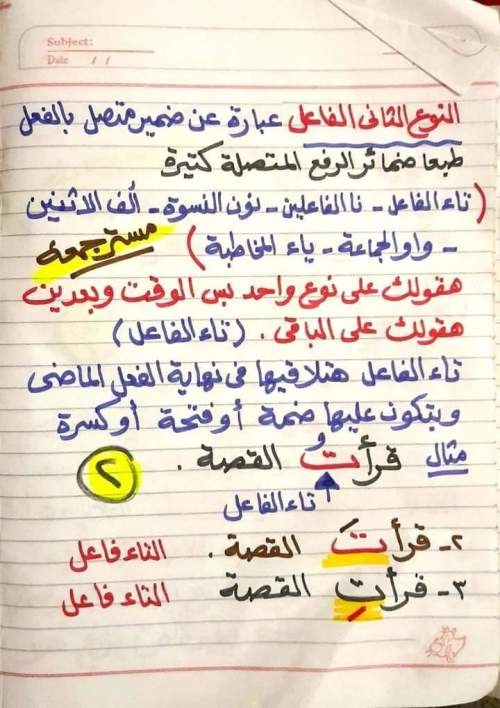 Subject:
Date / /
النوع الثانى الفاعل عبارة عن ضمير متصل بالفعل
طبعا ضمائر الرفع المتصلة كتيرة
(تاء الفاعل - نا الفاعلين - نون النسوة - ألف الاثنين
- واو الجماعة - ياء المخاطبة) مستر جمعه
هقولك على نوع واحد بس الوقت وبعدين
هقولك على الباقى . (تاء الفاعل)
تاء الفاعل هتلاقيها فى نهاية الفعل الماضى
وبتكون عليها ضمة أو فتحة أو كسرة
مثال قرأتُ القصة . ٢
تاء الفاعل
٢- قرأتَ القصة . التاء فاعل
٣- قرأتِ القصة التاء فاعل